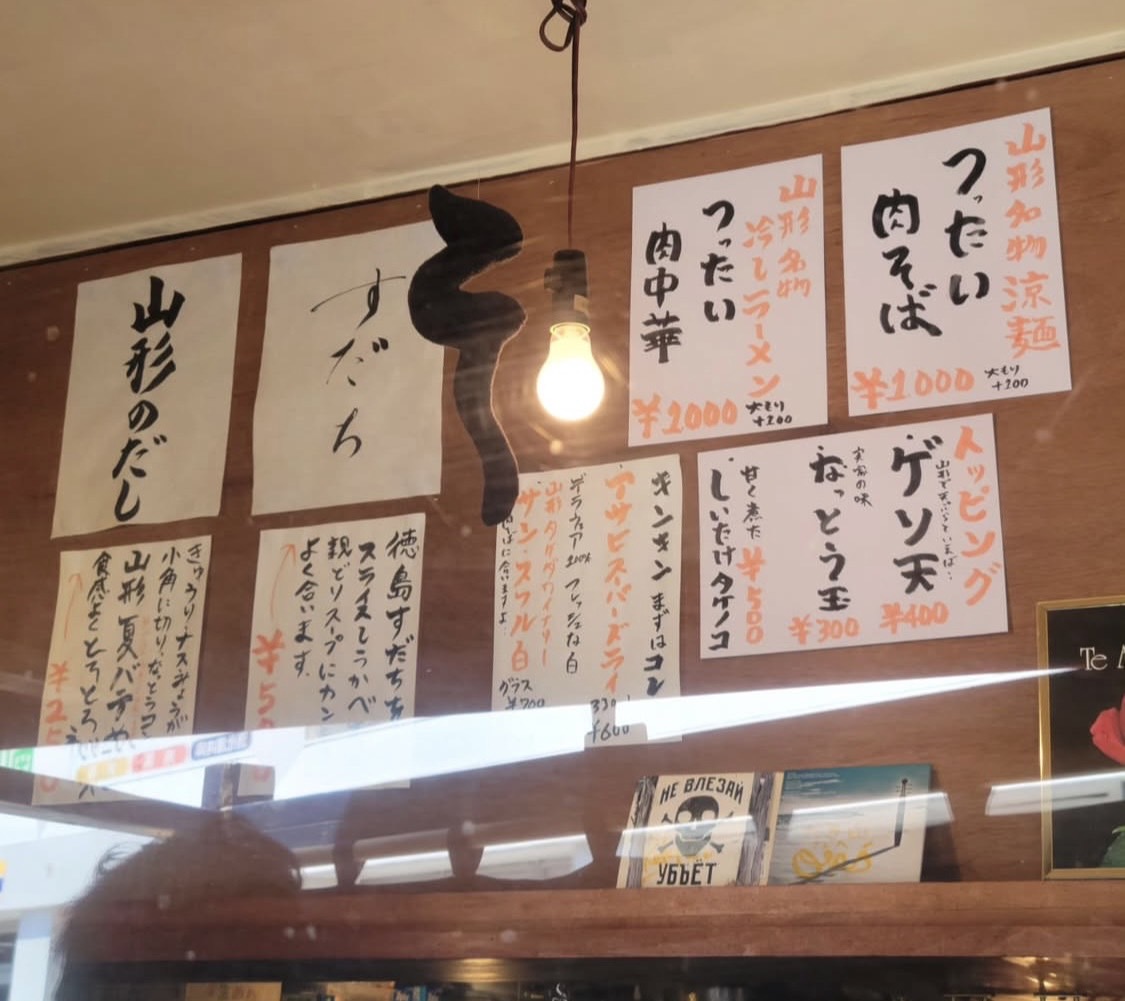 山形名物涼麺
つったい
肉そば
¥1000
大もり
+200
山形名物
冷しラーメン
つったい
肉中華
¥1000
大もり
+200
トッピング
山形で天ぷらといえば…
ゲソ天
¥400
実家の味
なっとう玉
¥300
甘く煮た
しいたけタケノコ
¥500
キンキン まずはコレ
アサヒスーパードライ
¥600
デラウェア 100% フレッシュな白
山形タケダワイナリー
サン・スフル白
グラス
¥700
肉そばに合いますよ…
すだち
徳島すだちを
スライスしうかべ
親どりスープにカン
よく合います.
山形のだし
きゅうり・ナス・みょうが
小角に切り・なっとうコ
山形夏バテめ
食感よくとろとろ
НЕ ВЛЕЗАЙ
УБЪЁТ
Te